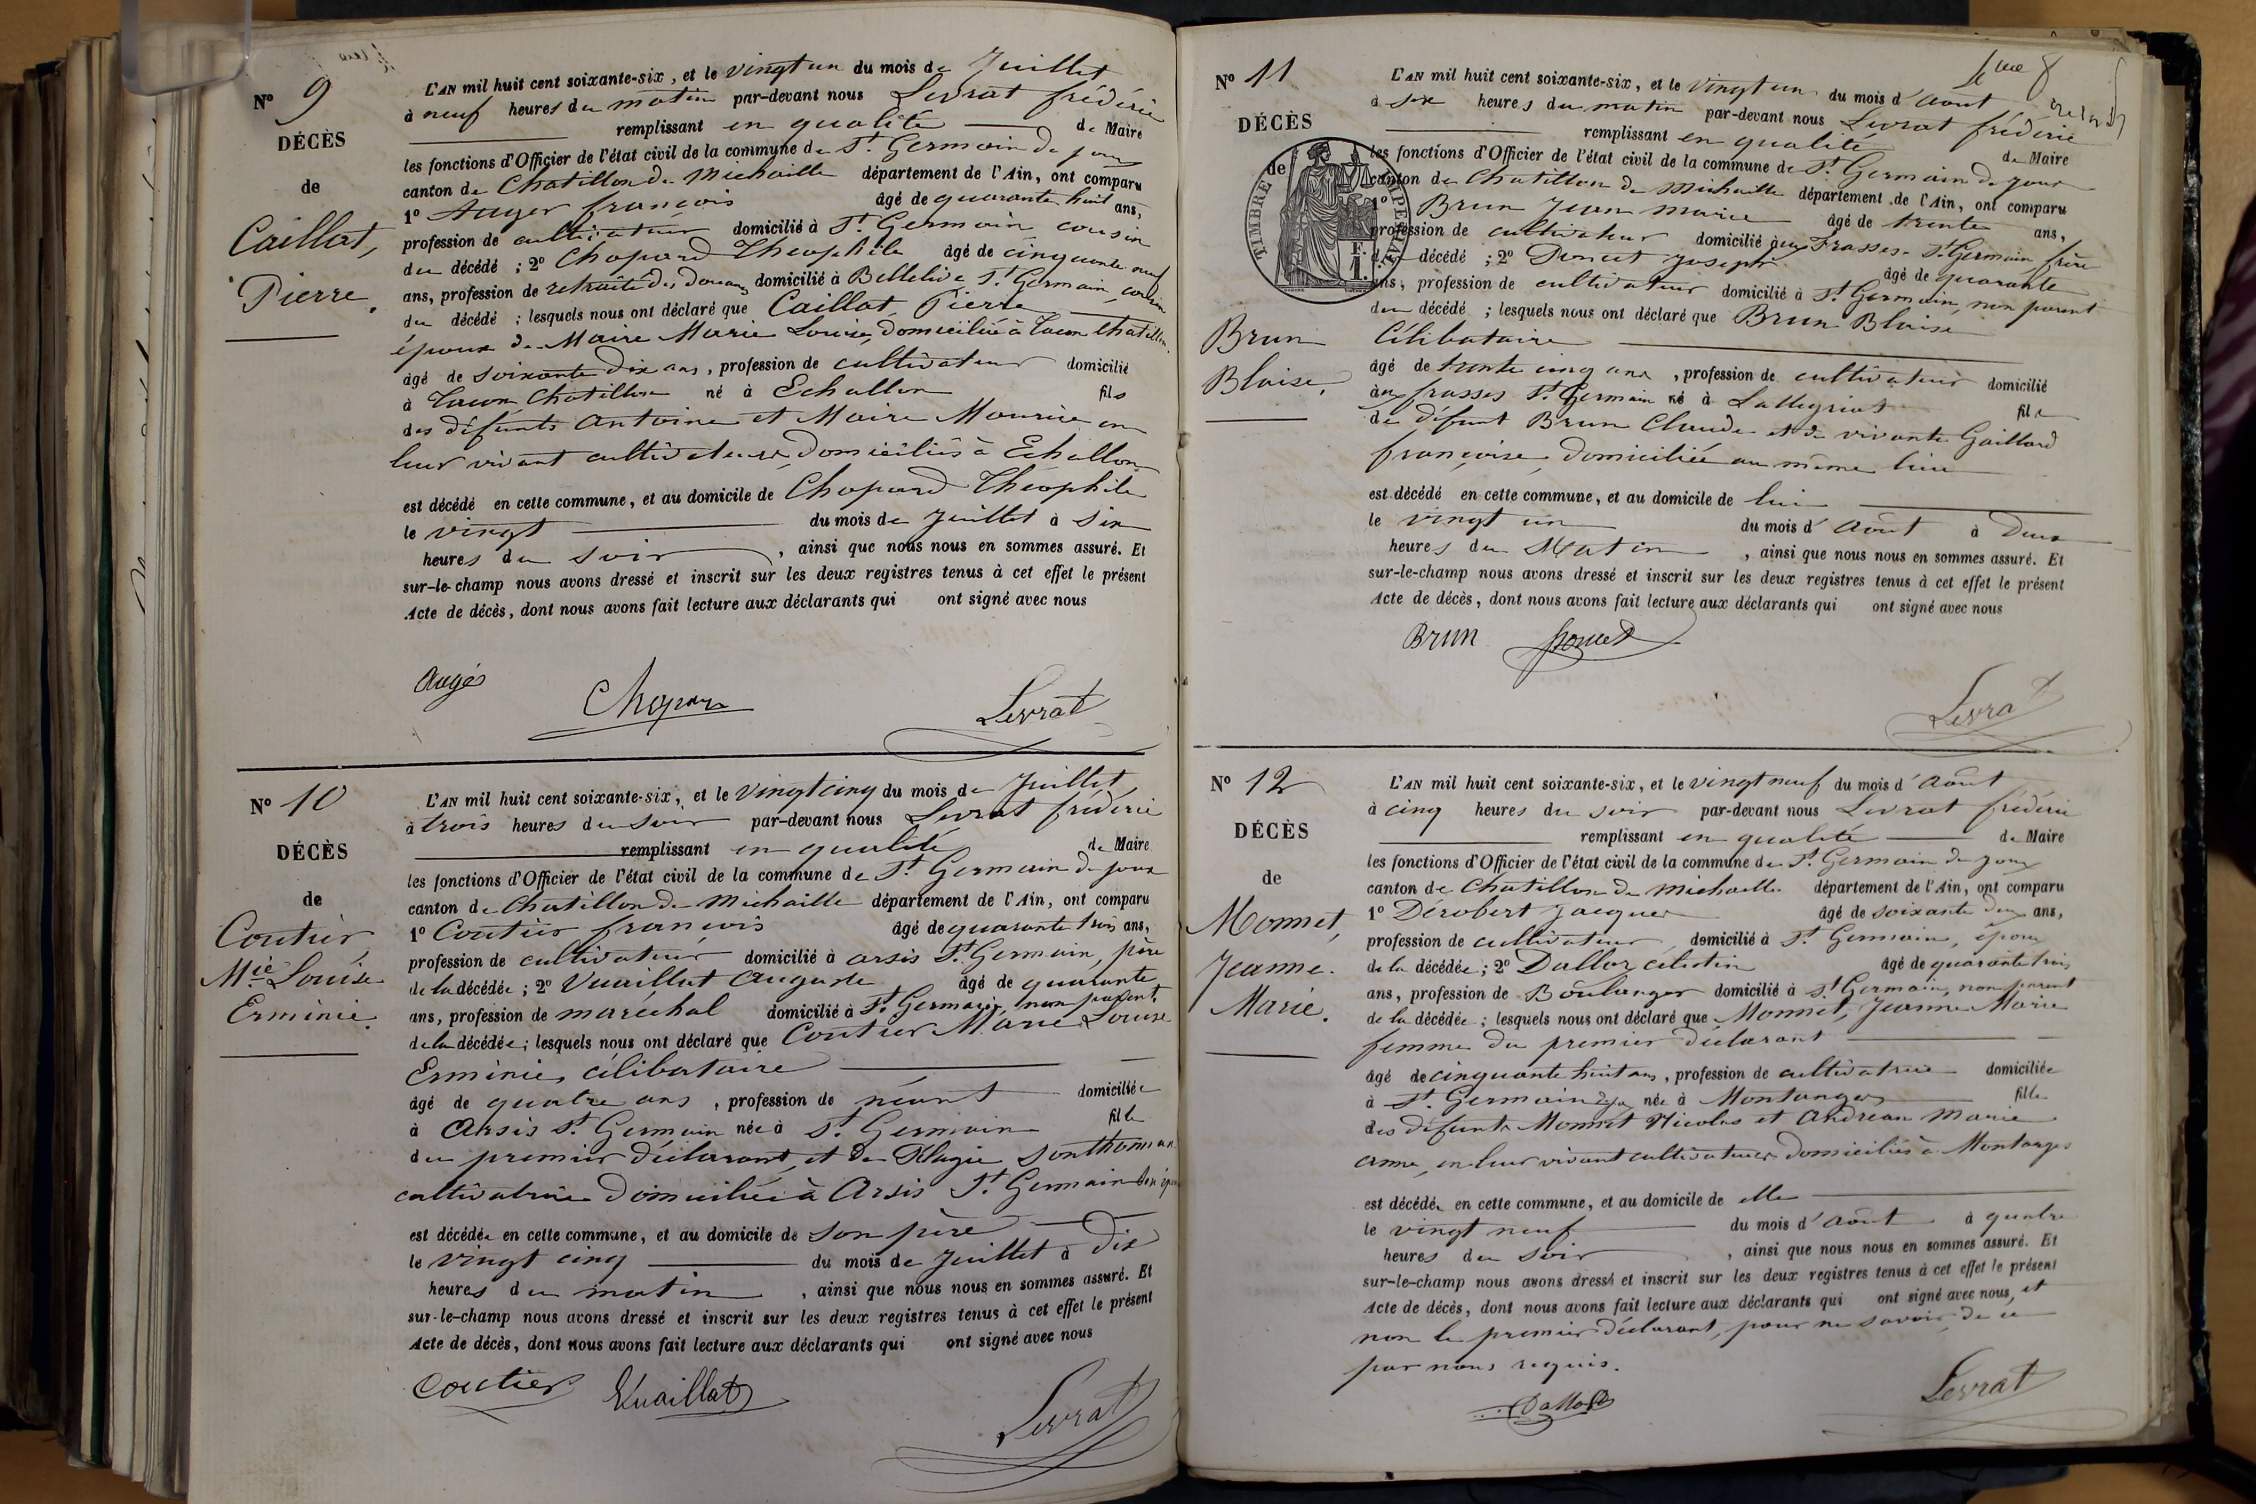 N° 9
DÉCÈS
de
Caillat,
Pierre.
L'AN mil huit cent soixante-six, et le vingt un du mois de Juillet
à neuf heures du matin par-devant nous Levrat frédéric
remplissant en qualité de Maire
les fonctions d'Officier de l'état civil de la commune de St. Germain de joux
canton de Chatillon de Michaille département de l'Ain, ont comparu
1° Auger françois âgé de quarante huit ans,
profession de cultivateur domicilié à St. Germain cousin
du décédé ; 2° Chopard Théophile âgé de cinquante neuf
ans, profession de retraité des douanes domicilié à Bellelive St. Germain, cousin
du décédé ; lesquels nous ont déclaré que Caillat, Pierre
époux de Maire Marie Louise, domiciliée à Tacon Chatillon.
âgé de soixante dix ans, profession de cultivateur domicilié
à Tacon Chatillon né à Echallon fils
des défunts Antoine et Maire Maurice en
leur vivant cultivateurs, domiciliés à Echallon
est décédé en cette commune, et au domicile de Chopard Théophile
le vingt du mois de Juillet à six
heures du soir, ainsi que nous nous en sommes assuré. Et
sur-le-champ nous avons dressé et inscrit sur les deux registres tenus à cet effet le présent
Acte de décès, dont nous avons fait lecture aux déclarants qui ont signé avec nous
Augé
Chopard
Levrat
N° 10
DÉCÈS
de
Coutier
Mie Louise
Erminie.
L'AN mil huit cent soixante-six, et le vingt cinq du mois de Juillet,
à trois heures du soir par-devant nous Levrat frédéric
remplissant en qualité de Maire
les fonctions d'Officier de l'état civil de la commune de St. Germain de joux
canton de Chatillon de Michaille département de l'Ain, ont comparu
1° Coutier françois âgé de quarante trois ans,
profession de cultivateur domicilié à arsis St. Germain, père
de la décédée ; 2° Vuaillat Auguste âgé de quarante
ans, profession de maréchal domicilié à St. Germain, non parent
de la décédée ; lesquels nous ont déclaré que Coutier Marie Louise
Erminie, célibataire
âgé de quatre ans, profession de néant domiciliée
à Arsis St. Germain née à St. Germain fille
du premier déclarant, et de Pélagie Sonthonnax
cultivatrice domiciliée à Arsis St. Germain
est décédée en cette commune, et au domicile de son père
le vingt cinq du mois de Juillet à dix
heures du matin, ainsi que nous nous en sommes assuré. Et
sur-le-champ nous avons dressé et inscrit sur les deux registres tenus à cet effet le présent
Acte de décès, dont nous avons fait lecture aux déclarants qui ont signé avec nous
Coutier Vuaillat
Levrat
N° 11
DÉCÈS
de
TIMBRE IMPERIAL
1 F.
Brun
Blaise.
L'AN mil huit cent soixante-six, et le vingt un du mois d'août
à six heures du matin par-devant nous Levrat frédéric
remplissant en qualité de Maire
les fonctions d'Officier de l'état civil de la commune de St. Germain de joux
canton de Chatillon de Michaille département de l'Ain, ont comparu
1° Brun Jean Marie âgé de trente ans,
profession de cultivateur domicilié aux frasses St. Germain, frère
du décédé ; 2° Poncet Joseph âgé de quarante
ans, profession de cultivateur domicilié à St. Germain, non parent
du décédé ; lesquels nous ont déclaré que Brun Blaise
Célibataire
âgé de trente cinq ans, profession de cultivateur domicilié
aux frasses St. Germain né à Lalleyriat fils
de défunt Brun Claude et de vivante Gaillard
françoise, domiciliée au même lieu
est décédé en cette commune, et au domicile de lui
le vingt un du mois d'août à deux
heures du Matin, ainsi que nous nous en sommes assuré. Et
sur-le-champ nous avons dressé et inscrit sur les deux registres tenus à cet effet le présent
Acte de décès, dont nous avons fait lecture aux déclarants qui ont signé avec nous
Brun Poncet
Levrat
N° 12
DÉCÈS
de
Monnet,
Jeanne.
Marie.
L'AN mil huit cent soixante-six, et le vingt neuf du mois d'août
à cinq heures du soir par-devant nous Levrat frédéric
remplissant en qualité de Maire
les fonctions d'Officier de l'état civil de la commune de St. Germain de joux
canton de Chatillon de Michaille département de l'Ain, ont comparu
1° Dérobert Jacques âgé de soixante deux ans,
profession de cultivateur, domicilié à St. Germain, époux
de la décédée ; 2° Dalloz célestin âgé de quarante trois
ans, profession de Boulanger domicilié à St. Germain, non parent
de la décédée ; lesquels nous ont déclaré que Monnet, Jeanne Marie
femme du premier déclarant
âgé de cinquante huit ans, profession de cultivatrice domiciliée
à St. Germain née à Montanges fille
des défunts Monnet Nicolas et Andréan Marie
anne, en leur vivant cultivateurs domiciliés à Montanges
est décédée en cette commune, et au domicile de elle
le vingt neuf du mois d'août à quatre
heures du soir, ainsi que nous nous en sommes assuré. Et
sur-le-champ nous avons dressé et inscrit sur les deux registres tenus à cet effet le présent
Acte de décès, dont nous avons fait lecture aux déclarants qui ont signé avec nous, et
non le premier déclarant, pour ne savoir, de ce
par nous requis.
Dalloz
Levrat